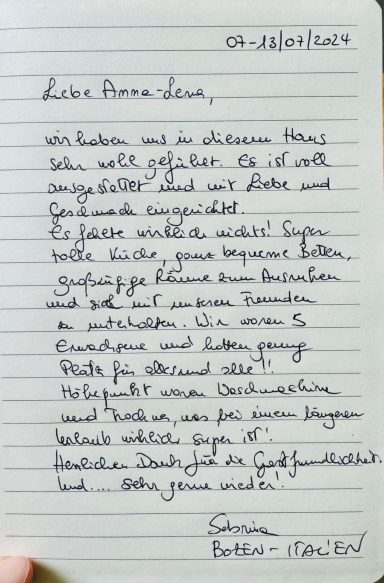 07-13/07/2024
Liebe Anna-Lena,
wir haben uns in diesem Haus
sehr wohl gefühlt. Es ist voll
ausgestattet und mit Liebe und
Geschmack eingerichtet.
Es fehlte wirklich nichts! Super
tolle Küche, ganz bequeme Betten,
großzügige Räume zum Ausruhen
und sich mit unseren Freunden
zu unterhalten. Wir waren 5
Erwachsene und hatten genug
Platz für alles und alle!!
Höhepunkt waren Waschmachine
und Trockner, was bei einem längeren
Urlaub wirklich super ist!
Herzlichen Dank für die Gastfreundlichkeit.
Und.... sehr gerne wieder!
Sabrina
BOZEN - ITALIEN